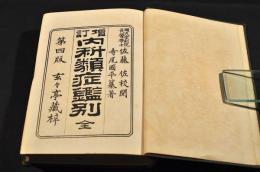 佐藤佐校閲
寺尾國平纂著
増訂
内科類症鑑別 全
第四版 玄々亭蔵梓